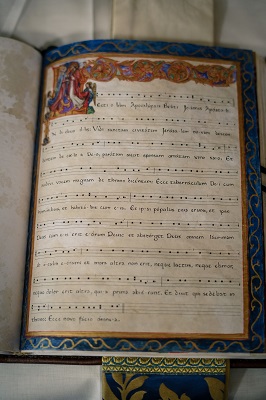 Lecti o libri Apocalypsis Beati Joannis Aposto li
In di ebus illis: Vidi sanctam civitatem Jerusa lem novam
de cae lo a De o, paratam sicut sponsam ornatam viro suo. Et
audivi vocem magnam de throno dicentem: Ecce tabernaculum De i cum
hominibus, et habita bit cum e is. Et ip si populus eius erunt, et ipse
Deus cum e is erit e orum Deus: et absterget Deus omnem lacrimam
ab o culis e orum: et mors ultra non erit, neque luctus, neque clamor,
neque dolor erit ultra, qui a prima abie runt. Et dixit qui sedebat in
throno: Ecce nova facio omni a.